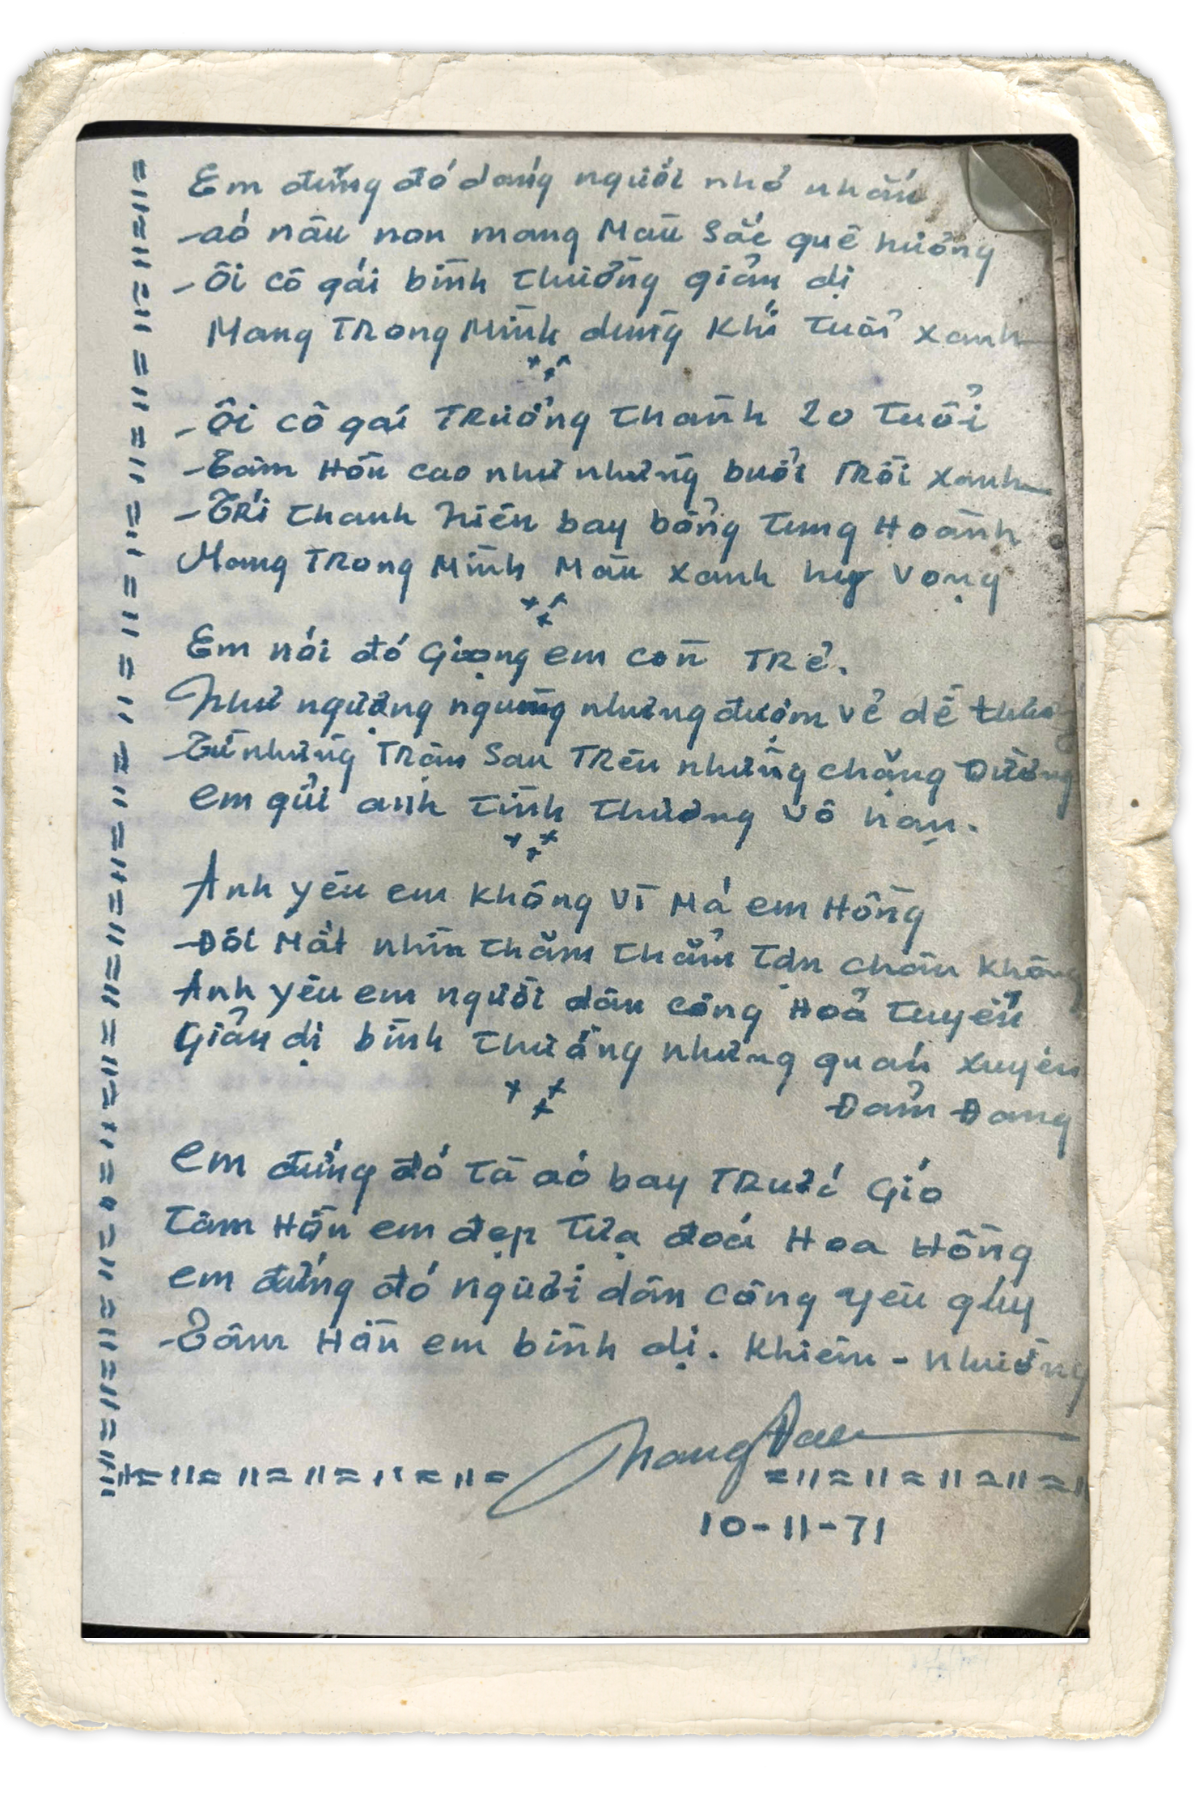 Em đứng đó dáng người nhỏ nhắn
-áo nâu non mang Màu Sắc quê hương
-Ôi cô gái bình thường giản dị
Mang TRong Mình dũng Khí tuổi xanh
-Ôi cô gái TRưởng thành 20 tuổi
-Tâm Hồn cao như những buổi TRời xanh
-TRí thanh niên bay bổng tung Hoành
Mang TRong Mình Màu xanh hy Vọng
Em nói đó Giọng em còn TRẻ.
Như ngượng ngùng nhưng đượm vẻ dễ thương
-Từ những TRận Sau TRên những chặng Đường
em gửi anh tình thương vô hạn.
Anh yêu em không vì Má em Hồng
-Đôi Mắt nhìn thăm thẳm tận chân không
Anh yêu em người dân công Hoả tuyến
Giản dị bình thường nhưng quán xuyến
Đảm Đang
em đứng đó tà áo bay TRước Gió
Tâm Hồn em đẹp tựa đoá Hoa Hồng
em đứng đó người dân công yêu qúy
-Tâm Hồn em bình dị. Khiêm - Nhường
10-11-71